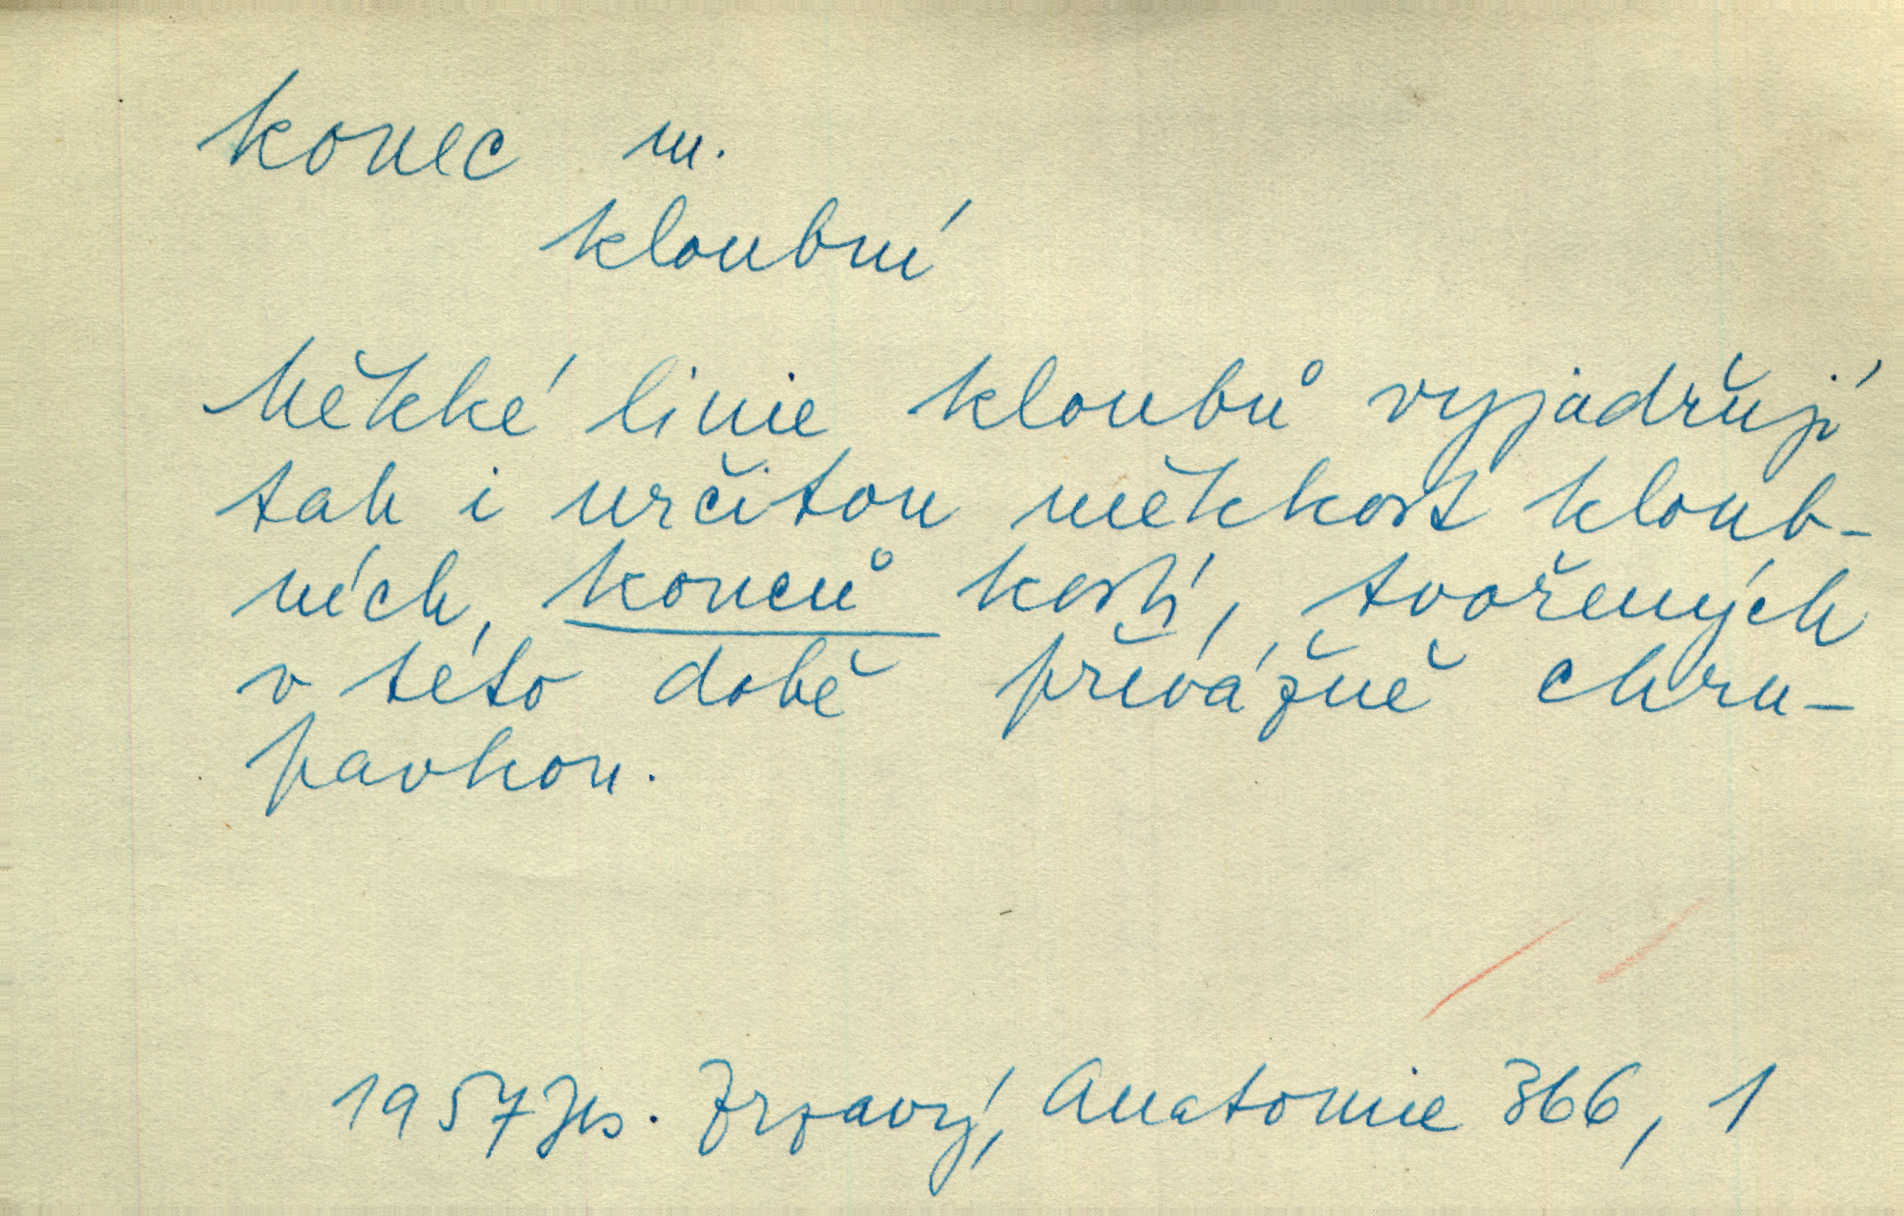 konec m.
kloubní
Měkké linie kloubů vyjadřují
tah i určitou měkkost kloub-
ních konců kostí, tvořených
v této době převážně chru-
pavkou.
1957 Jos. Zrzavý, Anatomie 366, 1